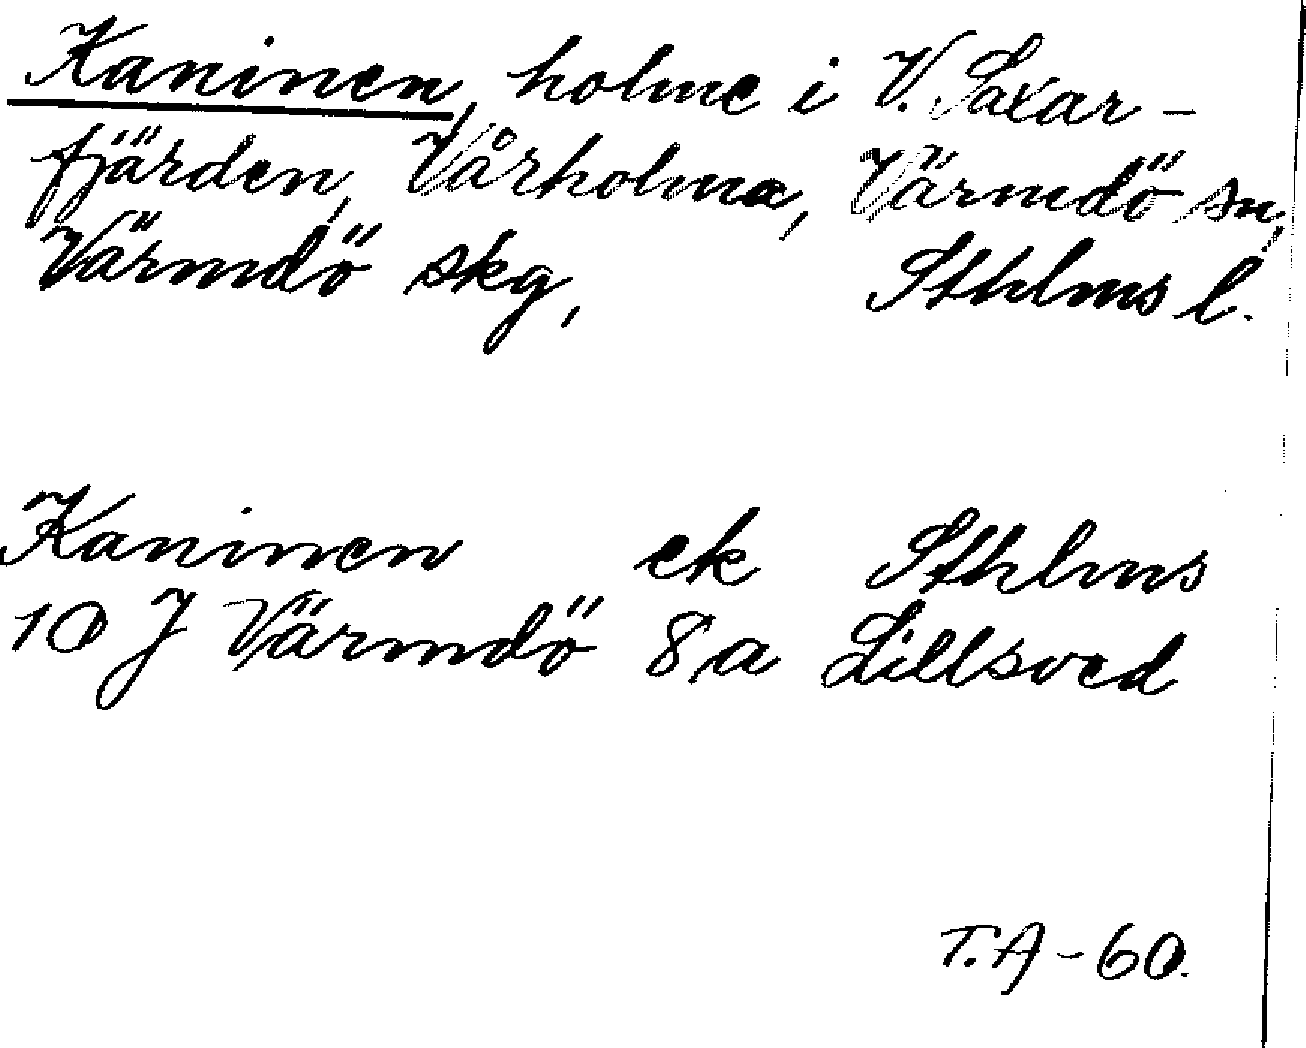 Kaninen, holme i V. Saxar-
fjärden, Vårholma, Värmdö sn,
Värmdö skg, Sthlms l.
Kaninen ek Sthlms
10 J Värmdö 8,a Lillsved
T.A-60.